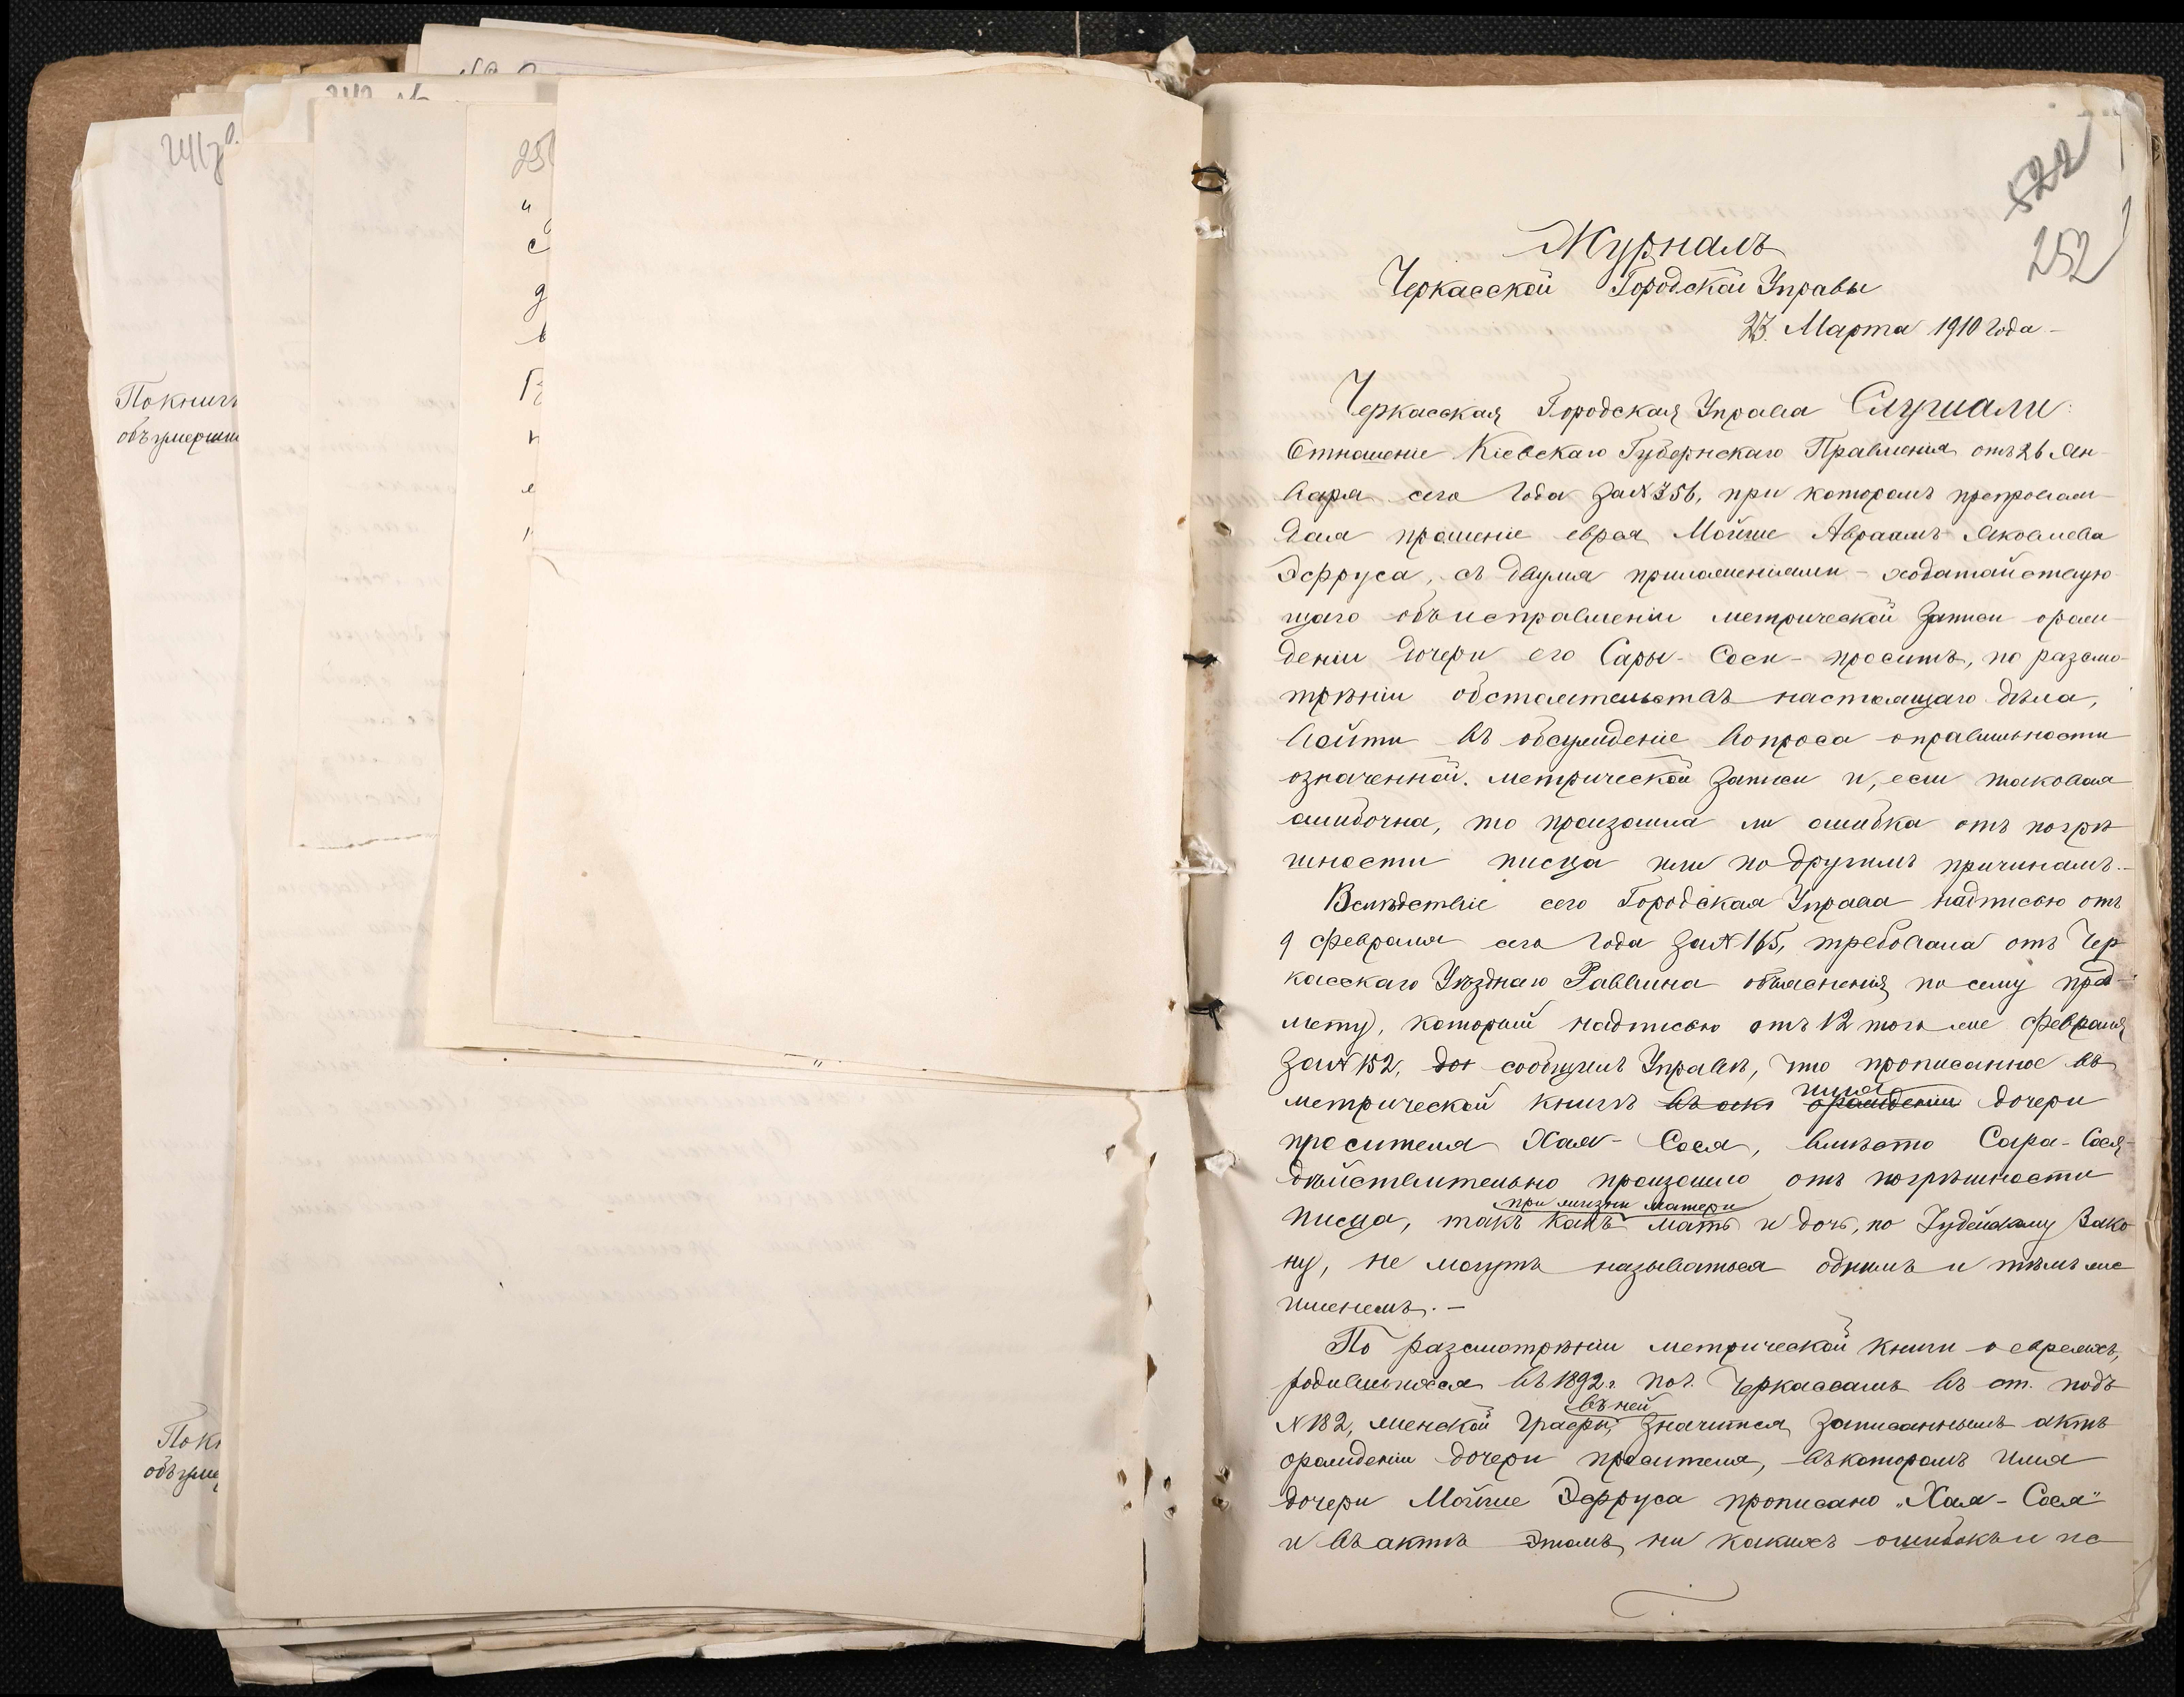 241 об.
По книгѣ
объ умерши
По кн
объ уме
522
252
Журналъ
Черкасской Городской Управы
23. Марта 1910 года –
Черкасская Городская Управа Слушали:
Отношеніе Кіевскаго Губернскаго Правленія отъ 26 Ян-
варя сего года за № 356, при которомъ препровож-
дая прошеніе еврея Мойше Авраамъ Яковлева
Эфруса, съ двумя приложеніями – ходатайствую-
щаго объ исправленіи метрической записи о рож-
деніи дочери его Сары-Соси – проситъ, по разсмо-
трѣніи обстоятельствъ настоящаго дѣла,
войти въ обсужденіе вопроса о правильности
означенной метрической записи и, если таковая
ошибочна, то произошла ли ошибка отъ погрѣ-
шности писца или по другимъ причинамъ. –
Вслѣдствіе сего Городская Управа надписью отъ
9 февраля сего года за № 165, требовала отъ Чер-
касскаго Уѣзднаго Раввина объясненія по сему пред-
мету, который надписью отъ 12 того же февраля
за № 152, сообщилъ Управѣ, что прописанное въ
метрической книгѣ имя о рожденіи дочери
просителя Хая-Сося, вмѣсто Сара-Сося –
дѣйствительно произошло отъ погрѣшности
при жизни матери
писца, такъ какъ мать и дочь, по Іудейскому Зако-
ну, не могутъ называться однимъ и тѣмъ же
именемъ. –
По разсмотрѣніи метрической книги о евреяхъ,
родившихся въ 1892 г. по г. Черкассамъ въ ст. подъ
въ ней
№ 182, женской графы, значится записаннымъ актъ
о рожденіи дочери просителя, въ которомъ имя
дочери Мойше Эфруса прописано „Хая-Сося"
и въ актѣ этомъ ни какихъ ошибокъ и по